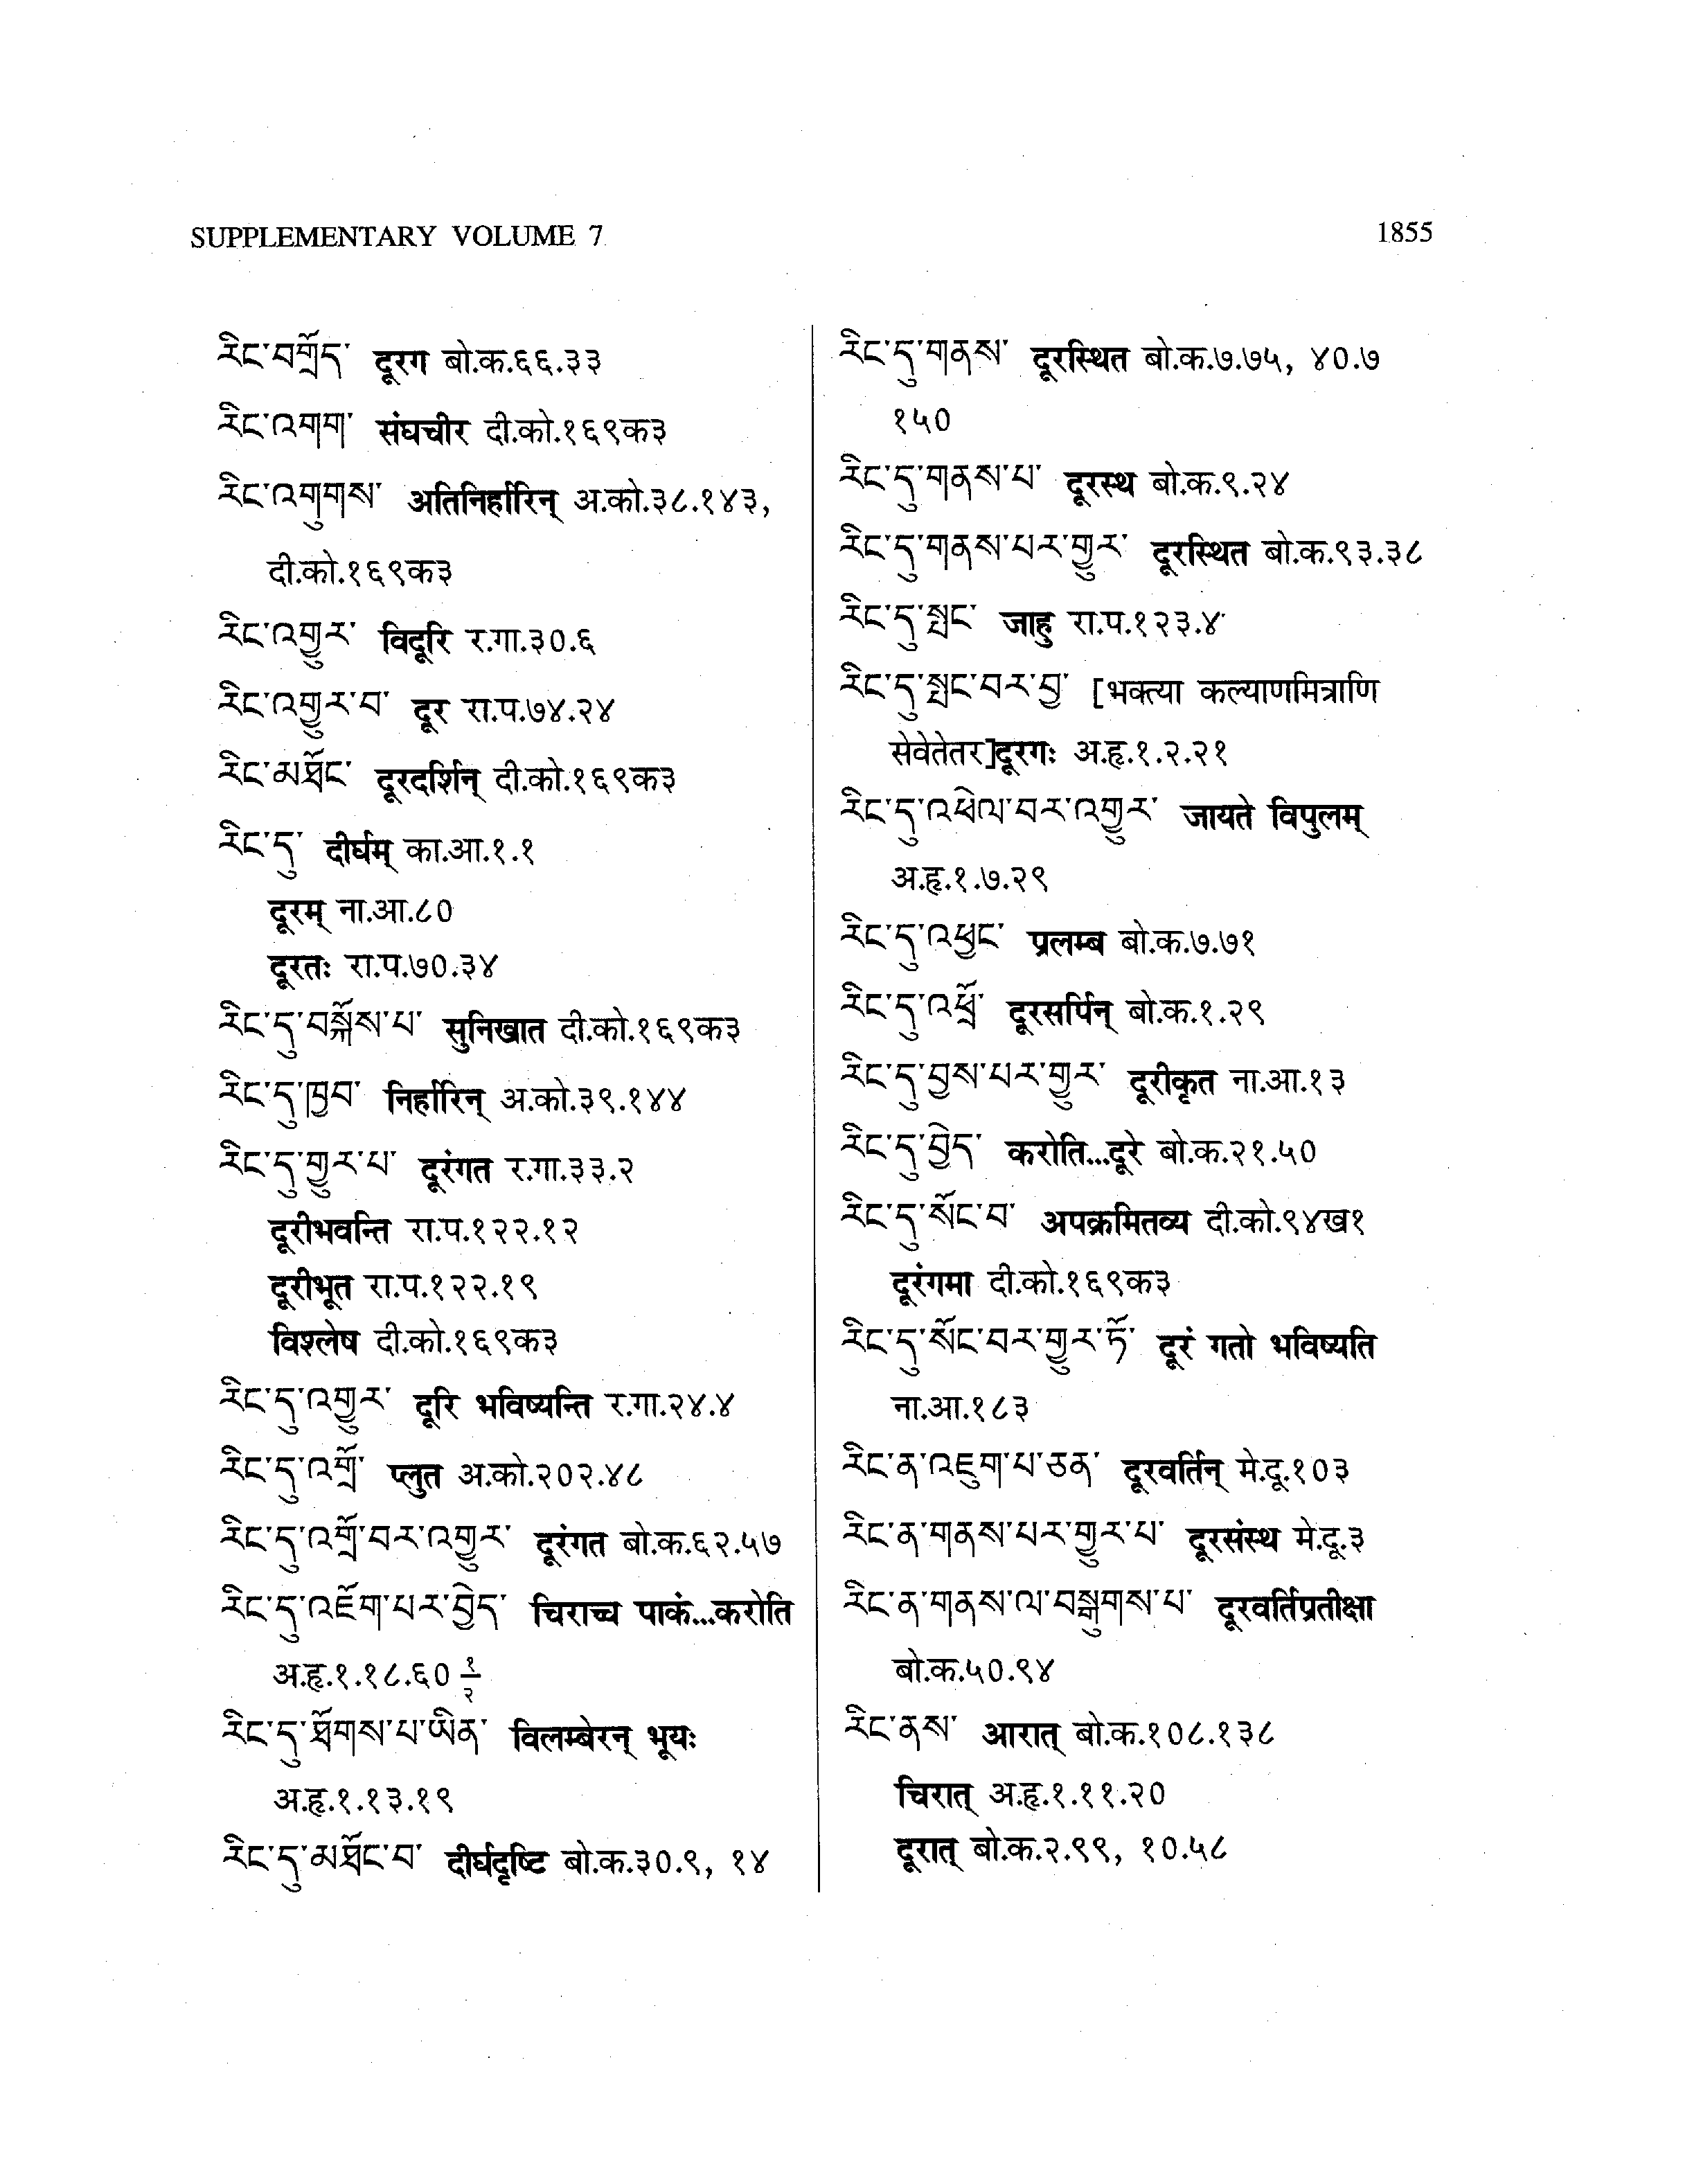 SUPPLEMENTARY VOLUME 7
1855
རིང་བགྲོད་ दूरग बो.क.६६.३३
རིང་འགག་ संघचीर दी.को.१६९क३
རིང་འགུགས་ अतिनिर्हारिन् अ.को.३८.१४३,
दी.को.१६९क३
རིང་འགྱུར་ विदूरि र.गा.३०.६
རིང་འགྱུར་བ་ दूर रा.प.७४.२४
རིང་མཐོང་ दूरदर्शिन् दी.को.१६९क३
རིང་དུ་ दीर्घम् का.आ.१.१
दूरम् ना.आ.८०
दूरतः रा.प.७०.३४
རིང་དུ་བསྐོས་པ་ सुनिखात दी.को.१६९क३
རིང་དུ་ཁྱབ་ निर्हारिन् अ.को.३९.१४४
རིང་དུ་གྱུར་པ་ दूरंगत र.गा.३३.२
दूरीभवन्ति रा.प.१२२.१२
दूरीभूत रा.प.१२२.१९
विश्लेष दी.को.१६९क३
རིང་དུ་འགྱུར་ दूरि भविष्यन्ति र.गा.२४.४
རིང་དུ་འགྲོ་ प्लुत अ.को.२०२.४८
རིང་དུ་འགྲོ་བར་འགྱུར་ दूरंगत बो.क.६२.५७
རིང་དུ་འཇོག་པར་བྱེད་ चिराच्च पाकं...करोति
अ.हृ.१.१८.६० १/२
རིང་དུ་ཐོགས་པ་ཡིན་ विलम्बेरन् भूयः
अ.हृ.१.१३.१९
རིང་དུ་མཐོང་བ་ दीर्घदृष्टि बो.क.३०.९, १४
རིང་དུ་གནས་ दूरस्थित बो.क.७.७५, ४०.७
१५०
རིང་དུ་གནས་པ་ दूरस्थ बो.क.९.२४
རིང་དུ་གནས་པར་གྱུར་ दूरस्थित बो.क.९३.३८
རིང་དུ་སྤང་ जाहु रा.प.१२३.४
རིང་དུ་སྤང་བར་བྱ་ [भक्त्या कल्याणमित्राणि
सेवेतेतर]दूरगः अ.हृ.१.२.२१
རིང་དུ་འཕེལ་བར་འགྱུར་ जायते विपुलम्
अ.हृ.१.७.२९
རིང་དུ་འཕྱང་ प्रलम्ब बो.क.७.७१
རིང་དུ་འཕྲོ་ दूरसर्पिन् बो.क.१.२९
རིང་དུ་བྱས་པར་གྱུར་ दूरीकृत ना.आ.१३
རིང་དུ་བྱེད་ करोति...दूरे बो.क.२१.५०
རིང་དུ་སོང་བ་ अपक्रमितव्य दी.को.९४ख१
दूरंगमा दी.को.१६९क३
རིང་དུ་སོང་བར་གྱུར་ཏོ་ दूरं गतो भविष्यति
ना.आ.१८३
རིང་ན་འཇུག་པ་ཅན་ दूरवर्तिन् मे.दू.१०३
རིང་ན་གནས་པར་གྱུར་པ་ दूरसंस्थ मे.दू.३
རིང་ན་གནས་ལ་བསྒུགས་པ་ दूरवर्तिप्रतीक्षा
बो.क.५०.९४
རིང་ནས་ आरात् बो.क.१०८.१३८
चिरात् अ.हृ.१.११.२०
दूरात् बो.क.२.९९, १०.५८